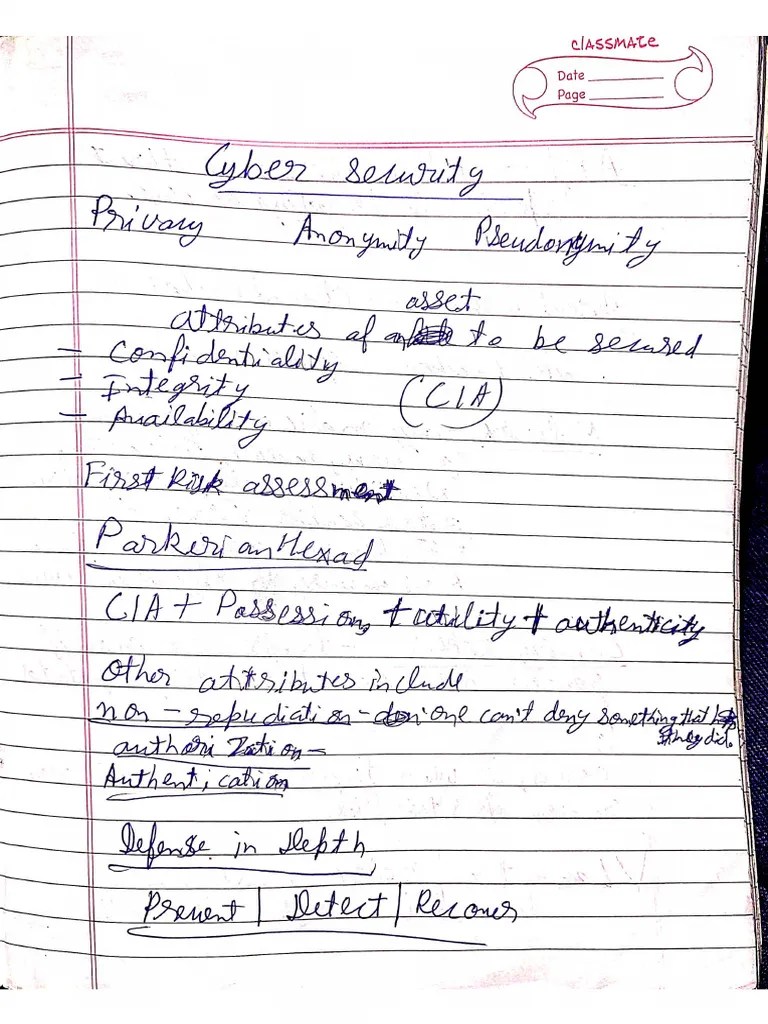 classmate
Date
Page
Cyber security
Privacy Anonymity Pseudonymity
asset
attributes of to be secured
- Confidentiality
- Integrity
(CIA)
- Availability
First Risk assessment
Parkerian Hexad
CIA + Possession + utility + authenticity
Other attributes include
non-repudiation - one can't deny something that
they did.
authorization -
Authentication
Defense in Depth
Prevent | Detect | Recover